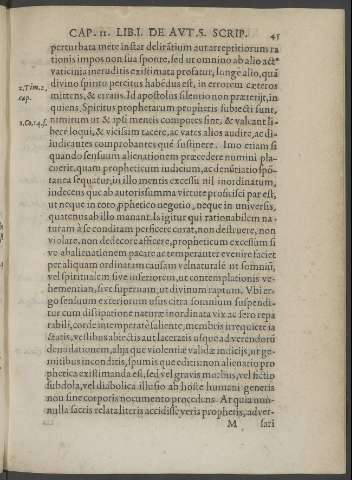 CAP. II. LIB. I. DE AVT. S. SCRIP. 45
perturbata mete instar delirãtium aut arreptitiorum ra
tionis impos non sua sponte, sed ut omnino ab alio act⁹
vaticinia ineruditis existimata profatur, longe alio, quã
2.Tim.2. divino spiritu percitus habẽdus est, in errorem cæteros
cap. mittens, & errans. Id apostolus silentio non præterijt, in
quiens, Spiritus prophetarum prophetis subiecti sunt,
1.Co.14.f. nimirum ut & ipsi mentis compotes sint, & valeant li-
bere loqui, & vicissim tacere, ac vates alios audire, ac di-
iudicantes comprobantes quẽ sustinere. Imo etiam si
quando sensuum alienationem præcedere numini pla-
cuerit, quam propheticum iudicium, ac denũtiatio spõ-
tanea sequatur, in illo mentis excessu nil inordinatum,
indecens que ab autorissima virtute proficisci par est,
ut neque in toto, pphetico negotio, neque in universis,
quatenus ab illo manant. Is igitur qui rationabilem na-
turam à se conditam perficere curat, non destruere, non
violare, non dedecore afficere, propheticum excessum si
ve abalienationem pacate ac temperanter evenire faciet
per aliquam ordinatam causam vel naturalẽ ut somnũ,
vel spiritualem sive inferiorem, ut contemplationis ve-
hementiam, sive supernam, ut divinum raptum. Ubi er-
go sensuum exteriorum usus citra somnium suspendi-
tur cum dissipatione naturæ inordinata vix ac sero repa
rabili, corde intemperatè saliente, membris irrequiete ia
ctatis, vestibus abiectis aut laceratis usque ad verendorũ
denudationem, alijs que violentiæ validæ indicijs, ut ge-
mitibus incenditis, spumis que editis: non alienatio pro
phetica existimanda est, sed vel gravis morbus, vel fictio
subdola, vel diabolica illusio ab hoste humani generis
non sine corporis nocumento procedens. At quia non-
nulla sacris relata literis accidisse veris prophetis, adver-
M sari